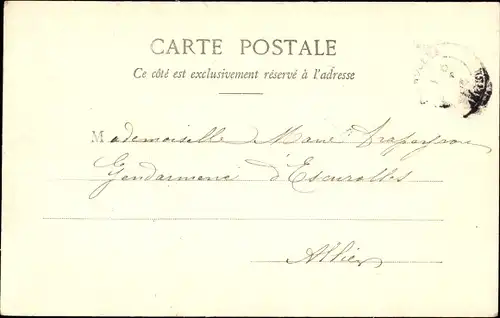 CARTE POSTALE
Ce côté est exclusivement réservé à l'adresse
Mademoiselle Marie
Gendarmerie d'Escurolles
Allier